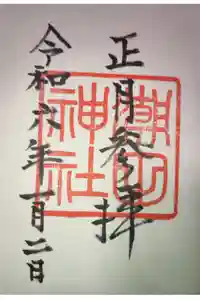 正月参拝
神社
令和六年一月二日